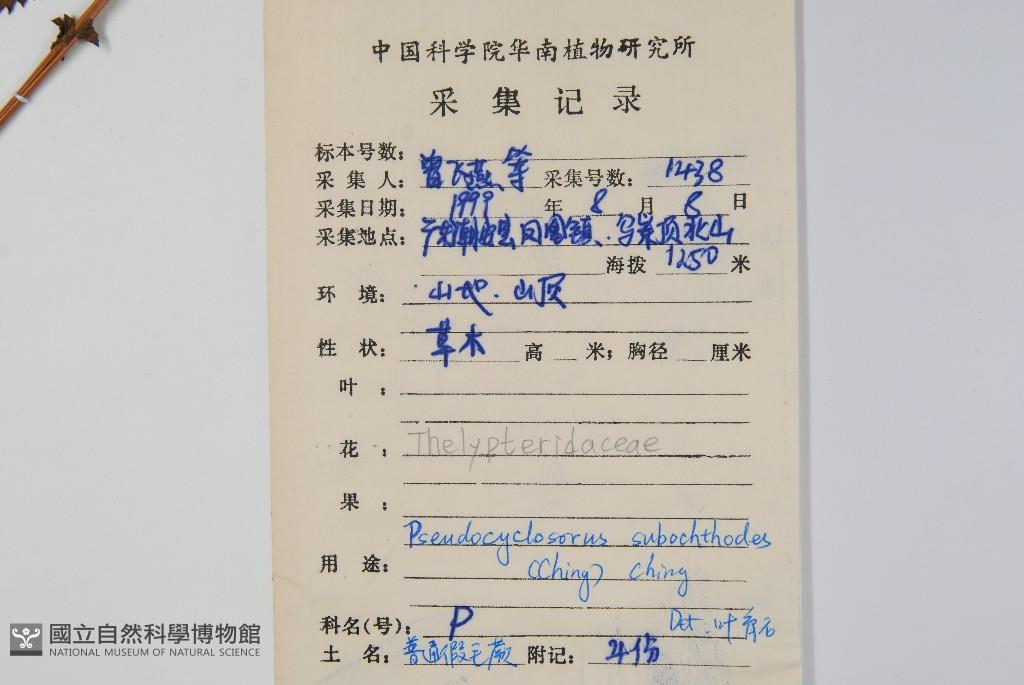 中国科学院华南植物研究所
采集记录
标本号数:
采集人: 曾飞燕等 采集号数: 12438
采集日期: 1999年8月8日
采集地点: 广东潮安县凤凰镇、乌岽顶北山
海拨 1250 米
环境: 山地.山顶
性状: 草木 高 米; 胸径 厘米
叶:
花: Thelypteridaceae
果:
Pseudocyclosorus subochthodes
用途: (Ching) Ching
科名(号): P Det. 叶
土名: 普通假毛蕨 附记: 4份
國立自然科學博物館
NATIONAL MUSEUM OF NATURAL SCIENCE